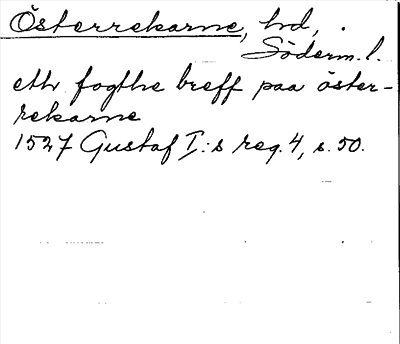 Österrekarne, hd,
Söderm. l.
eth fogthe breff paa öster-
rekarne
1527 Gustaf I:s reg. 4, s. 50.